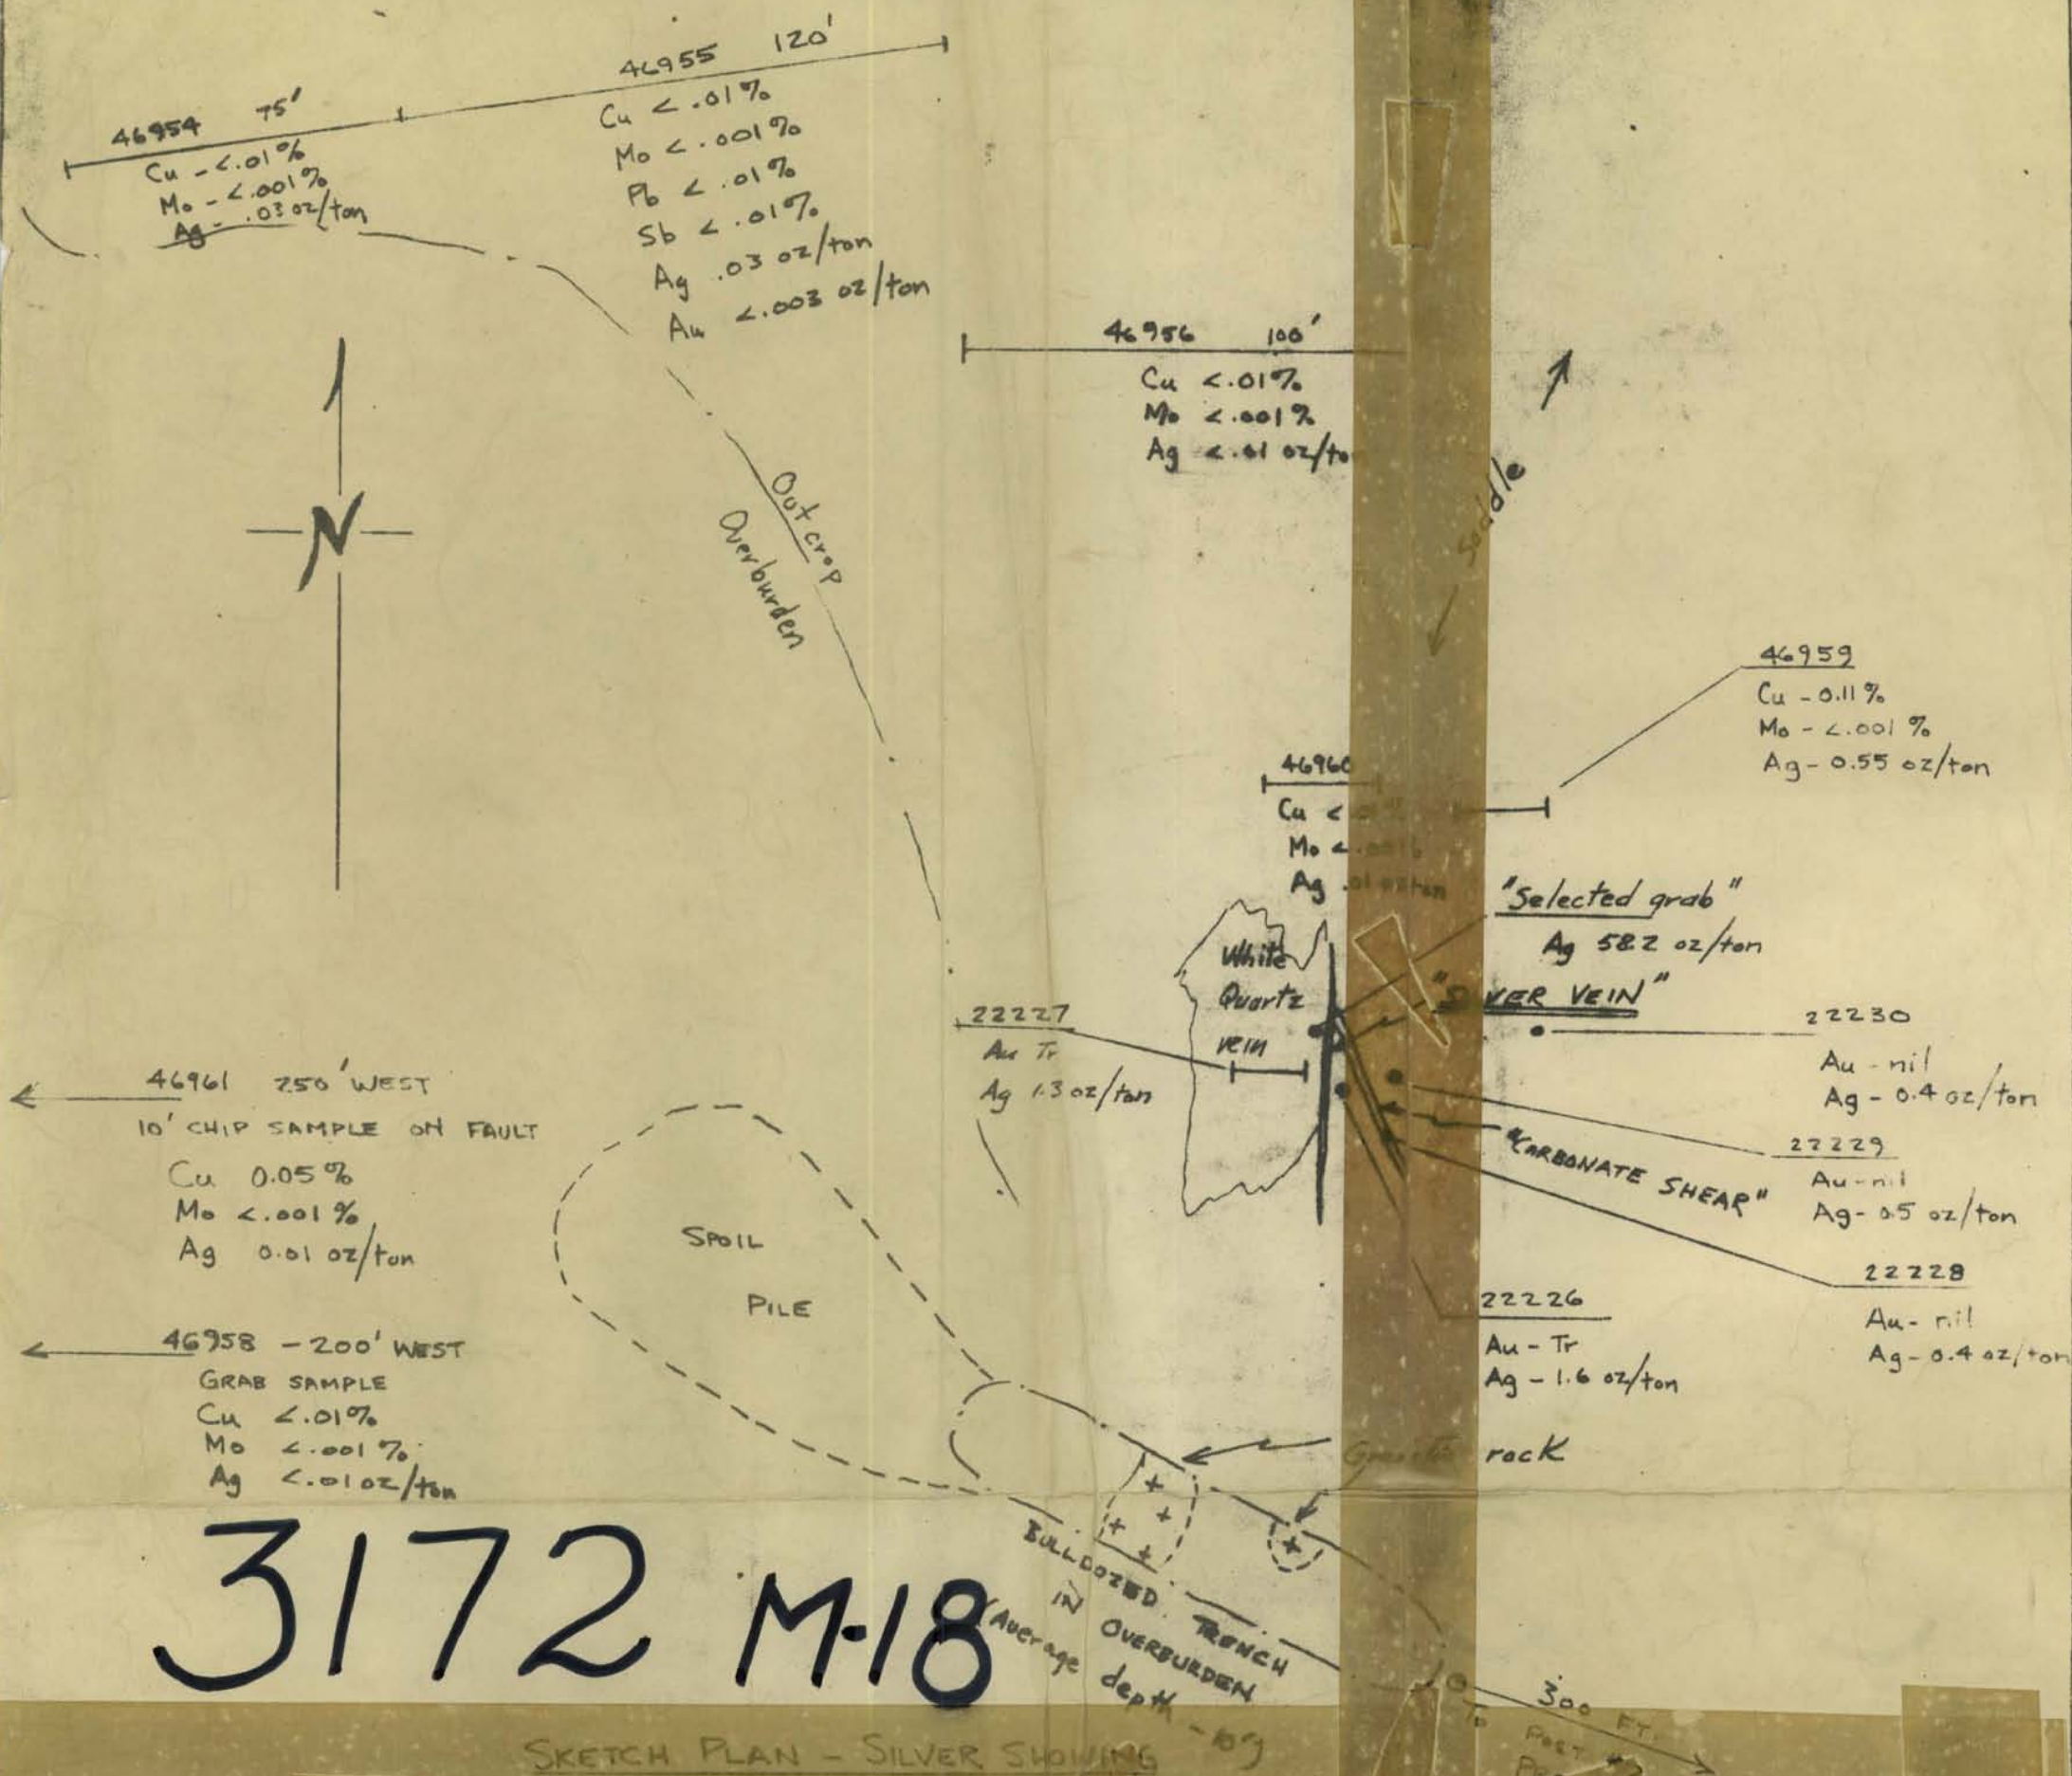 46954 75'
Cu - <.01%
Mo - <.001%
Ag - .03 oz/ton
46955 120'
Cu < .01%
Mo < .001%
Pb < .01%
Sb < .01%
Ag .03 oz/ton
Au <.003 oz/ton
46956 100'
Cu <.01%
Mo <.001%
Ag <.01 oz/to
Saddle
N
Outcrop
Overburden
46959
Cu - 0.11%
Mo - <.001%
Ag - 0.55 oz/ton
46960
Cu <
Mo <
Ag .01 oz/ton
"Selected grab"
Ag 58.2 oz/ton
"SILVER VEIN"
White
Quartz
vein
22227
Au Tr
Ag 1.3 oz/ton
22230
Au - nil
Ag - 0.4 oz/ton
22229
Au - nil
Ag - 0.5 oz/ton
"CARBONATE SHEAR"
22228
Au - nil
Ag - 0.4 oz/ton
22226
Au - Tr
Ag - 1.6 oz/ton
46961 250' WEST
10' CHIP SAMPLE ON FAULT
Cu 0.05%
Mo <.001%
Ag 0.01 oz/ton
SPOIL
PILE
46958 - 200' WEST
GRAB SAMPLE
Cu <.01%
Mo <.001%
Ag <.01 oz/ton
rock
BULLDOZED TRENCH
IN OVERBURDEN
(Average depth -
3172 M-18
300 FT.
TO
POST
SKETCH PLAN - SILVER SHOWING